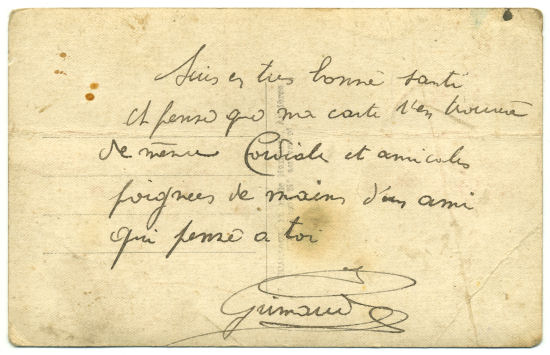 Suis en tres bonne santé
et pense que ma carte t'en trouvera
de même Cordiale et amicales
poignees de mains d'un ami
qui pense a toi
Grimaud